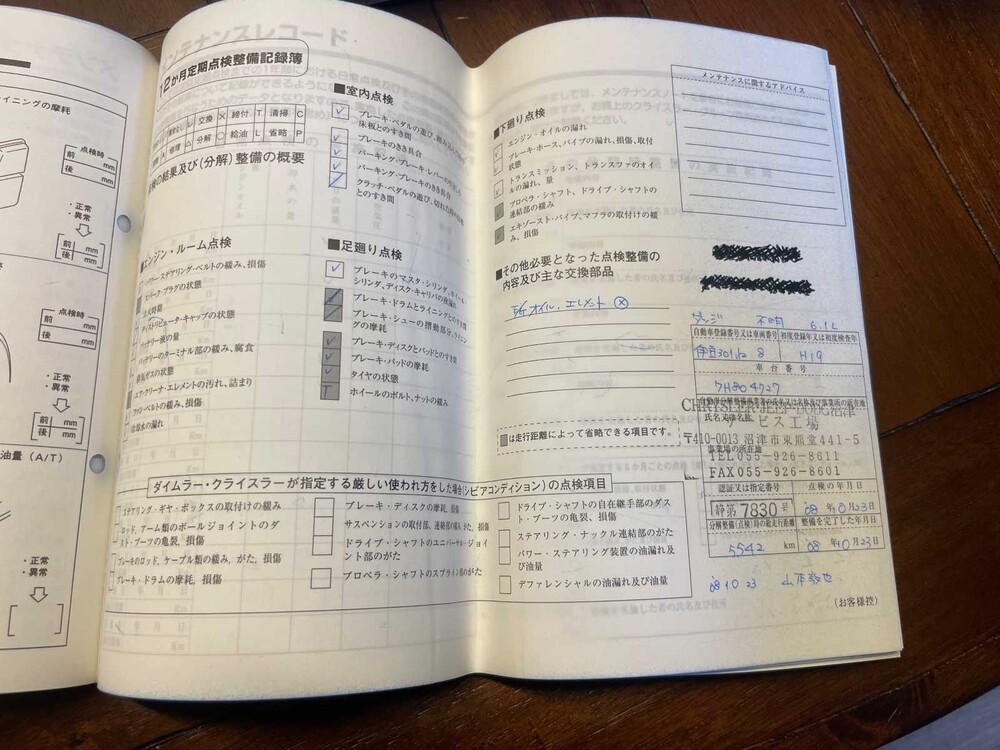 イニングの摩耗
点検時
前 mm
後 mm
・正常
・異常
前 mm
後 mm
点検時
前 mm
後 mm
・正常
・異常
前 mm
後 mm
油量(A/T)
・正常
・異常
メンテナンスレコード
12か月定期点検整備記録簿
交換 × 締付 T 清掃 C
修理 △ 分解 ○ 給油 L 省略 P
の結果及び(分解)整備の概要
■エンジン・ルーム点検
パワー・ステアリング・ベルトの緩み、損傷
スパーク・プラグの状態
点火時期
ディストリビュータ・キャップの状態
バッテリー液の量
バッテリーのターミナル部の緩み、腐食
排気ガスの状態
エア・クリーナ・エレメントの汚れ、詰まり
ファン・ベルトの緩み、損傷
冷却水の漏れ
■室内点検
ブレーキ・ペダルの遊び、踏み込んだ
床板とのすき間
ブレーキのきき具合
パーキング・ブレーキ・レバーの
パーキング・ブレーキのきき具合
クラッチ・ペダルの遊び、切れた
とのすき間
■足廻り点検
ブレーキのマスタ・シリンダ、ホイール・
シリンダ、ディスク・キャリパの液漏れ
ブレーキ・ドラムとライニングとのすき間
ブレーキ・シューの摺動部分、ライニン
グの摩耗
ブレーキ・ディスクとパッドとのすき間
ブレーキ・パッドの摩耗
タイヤの状態
ホイールのボルト、ナットの緩み
■下廻り点検
エンジン・オイルの漏れ
ブレーキ・ホース、パイプの漏れ、損傷、取付
状態
トランスミッション、トランスファのオイ
ルの漏れ、量
プロペラ・シャフト、ドライブ・シャフトの
連結部の緩み
エキゾースト・パイプ、マフラの取付けの緩
み、損傷
■その他必要となった点検整備の
内容及び主な交換部品
オイル、エレメント ⊗
■は走行距離によって省略できる項目です。
メンテナンスに関するアドバイス
ダッジ 不明 6.1L
自動車登録番号又は車両番号 初度登録年又は初度検査年
伊豆301ね 8 H19
車台番号
7H804727
自動車分解整備事業者の氏名又は名称及び事業場の所在地
CHRYSLER JEEP DODGE沼津
サービス工場
〒410-0013 沼津市東熊堂441-5
TEL 055-926-8611
FAX 055-926-8601
認証又は指定番号 点検の年月日
静第7830号 '08年10月23日
分解整備(点検)時の総走行距離 整備を完了した年月日
5542 km '08年10月23日
'08 10 23
(お客様控)
ダイムラー・クライスラーが指定する厳しい使われ方をした場合(シビアコンディション)の点検項目
ステアリング・ギヤ・ボックスの取付けの緩み
ロッド、アーム類のボールジョイントのダ
スト・ブーツの亀裂、損傷
ブレーキのロッド、ケーブル類の緩み、がた、損傷
ブレーキ・ドラムの摩耗、損傷
ブレーキ・ディスクの摩耗、損傷
サスペンションの取付部、連結部の緩み、がた、損傷
ドライブ・シャフトのユニバーサル・ジョイ
ント部のがた
プロペラ・シャフトのスプライン部のがた
ドライブ・シャフトの自在継手部のダス
ト・ブーツの亀裂、損傷
ステアリング・ナックル連結部のがた
パワー・ステアリング装置の油漏れ及
び油量
デファレンシャルの油漏れ及び油量